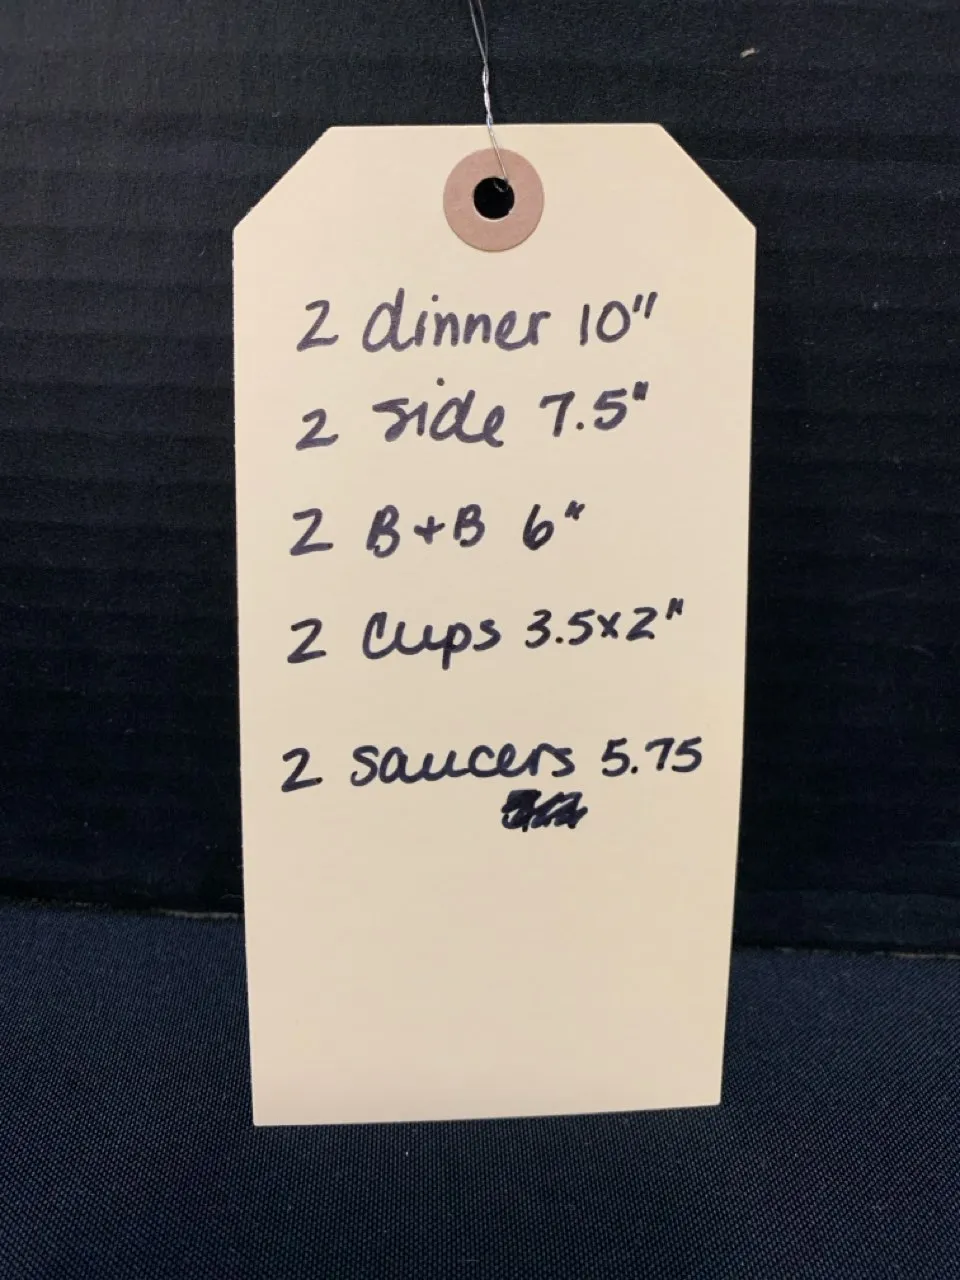 2 dinner 10"
2 side 7.5"
2 B+B 6"
2 Cups 3.5x2"
2 saucers 5.75